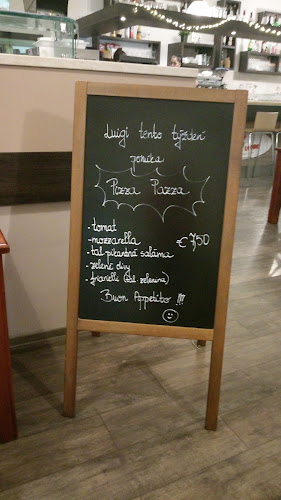 Luigi tento týždeń
ponúka
Pizza Pazza
- tomat
- mozzarella
€ 7,50
- tal. pikantná saláma
- zelené olivy
- friarielli (tal. zelenina)
Buon Appetito !!!